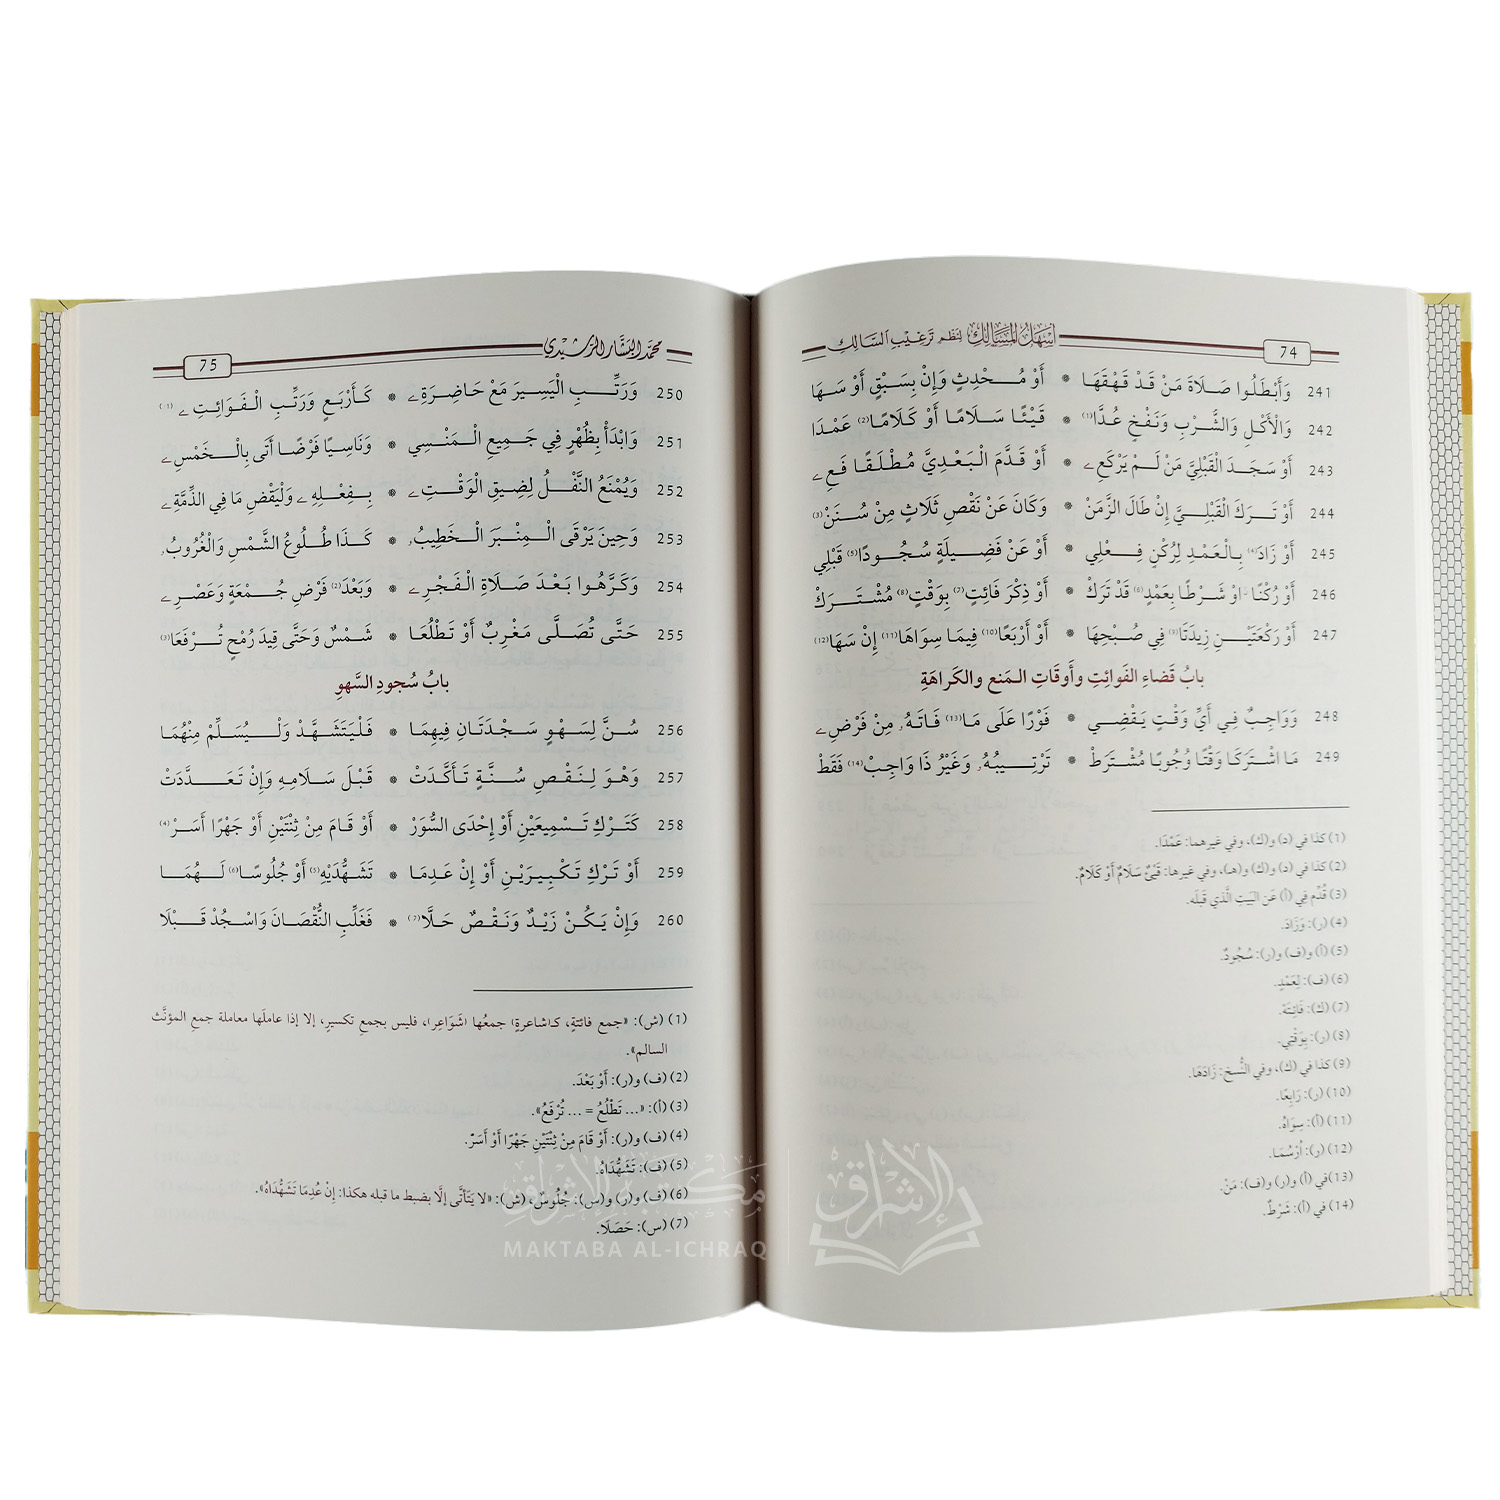 74 أسهل المسالك لنظم ترغيب السالك
241 وَأَبْطَلُوا صَلَاةَ مَنْ قَدْ قَهْقَهَا * أَوْ مُحْدِثٍ وَإِنْ بِسَبْقٍ أَوْ سَهَا
242 وَالْأَكْلِ وَالشُّرْبِ وَنَفْخٍ عُدَّا(1) * قَيْئًا سَلَامًا أَوْ كَلَامًا(2) عَمْدَا
243 أَوْ سَجَدَ الْقَبْلِيَّ مَنْ لَمْ يَرْكَعِ ے * أَوْ قَدَّمَ الْبَعْدِيَّ مُطْلَقًا فَعِ ے
244 أَوْ تَرَكَ الْقَبْلِيَّ إِنْ طَالَ الزَّمَنْ * وَكَانَ عَنْ نَقْصِ ثَلَاثٍ مِنْ سُنَنْ(3)
245 أَوْ زَادَ(4) بِالْعَمْدِ لِرُكْنٍ فِعْلِي * أَوْ عَنْ فَضِيلَةٍ سُجُودًا(5) قَبْلِي
246 أَوْ رُكْنًا اوْ شَرْطًا بِعَمْدٍ(6) قَدْ تَرَكْ * أَوْ ذِكْرَ فَائِتٍ(7) بِوَقْتٍ(8) مُشْتَرَكْ
247 أَوْ رَكْعَتَيْنِ زِيدَتَا(9) فِي صُبْحِهَا * أَوْ أَرْبَعًا(10) فِيمَا سِوَاهَا(11) إِنْ سَهَا(12)
بابُ قَضاءِ الفَوائِتِ وأَوقَاتِ المَنعِ والكَراهَةِ
248 وَوَاجِبٌ فِي أَيِّ وَقْتٍ يَقْضِي * فَوْرًا عَلَى مَا(13) فَاتَهُ, مِنْ فَرْضِ ے
249 مَا اشْتَرَكَا وَقْتًا وُجُوبًا مُشْتَرَطْ * تَرْتِيبُهُ, وَغَيْرُ ذَا وَاجِبْ(14) فَقَطْ
(1) كذا في (د) و(ك)، وفي غيرهما: عَمْدَا.
(2) كذا في (د) و(ك) و(هـ)، وفي غيرها: قَيْءٌ سَلَامٌ أَوْ كَلَامٌ.
(3) قُدِّم في (أ) عَن البَيت الَّذي قبلَه.
(4) (ر): وَزَادَ.
(5) (أ) و(ف) و(ر): سُجُودٌ.
(6) (ف): لِعَمْدٍ.
(7) (ك): فَائِتَةْ.
(8) (ر): بِوَقْتِي.
(9) كذا في (ك)، وفي النُّسخ: زَادَهَا.
(10) (ر): رَابِعًا.
(11) (أ): سِوَاهُ.
(12) (ر): اُرْسُمَا.
(13) في (أ) و(ر) و(ف): مَنْ.
(14) في (أ): شَرْطٌ.
محمد البشار الرشيدي 75
250 وَرَتِّبِ الْيَسِيرَ مَعْ حَاضِرَةِ ے * كَأَرْبَعٍ وَرَتِّبِ الْفَوَائِتِ ے (1)
251 وَابْدَأْ بِظُهْرٍ فِي جَمِيعِ الْمَنْسِي * وَنَاسِيًا فَرْضًا أَتَى بِالْخَمْسِ ے
252 وَيُمْنَعُ النَّفْلُ لِضِيقِ الْوَقْتِ ے * بِفِعْلِهِ ے وَلْيَقْضِ مَا فِي الذِّمَّةِ ے
253 وَحِينَ يَرْقَى الْمِنْبَرَ الْخَطِيبُ, * كَذَا طُلُوعُ الشَّمْسِ وَالْغُرُوبُ,
254 وَكَرَّهُوا بَعْدَ صَلَاةِ الْفَجْرِ ے * وَبَعْدَ(2) فَرْضِ جُمْعَةٍ وَعَصْرِ ے
255 حَتَّى تُصَلَّى مَغْرِبٌ أَوْ تَطْلُعَا * شَمْسٌ وَحَتَّى قِيدَ رُمْحٍ تُرْفَعَا(3)
بابُ سُجودِ السَّهوِ
256 سُنَّ لِسَهْوٍ سَجْدَتَانِ فِيهِمَا * فَلْيَتَشَهَّدْ وَلْيُسَلِّمْ مِنْهُمَا
257 وَهْوَ لِنَقْصِ سُنَّةٍ تَأَكَّدَتْ * قَبْلَ سَلَامِهِ وَإِنْ تَعَدَّدَتْ
258 كَتَرْكِ تَسْمِيعَيْنِ أَوْ إِحْدَى السُّوَرْ * أَوْ قَامَ مِنْ ثِنْتَيْنِ أَوْ جَهْرًا أَسَرْ(4)
259 أَوْ تَرْكِ تَكْبِيرَيْنِ أَوْ إِنْ عَدِمَا * تَشَهُّدَيْهِ(5) أَوْ جُلُوسًا(6) لَهُمَا
260 وَإِنْ يَكُنْ زَيْدٌ وَنَقْصٌ حَلَّا(7) * فَغَلِّبِ النُّقْصَانَ وَاسْجُدْ قَبْلَا
(1) (ش): «جمع فائتةٍ، كـ(شاعرةٍ) جمعُها (شَوَاعِر)، فليس بجمعِ تكسيرٍ، إلا إذا عاملَها معاملة جمعِ المؤنَّث
السالم».
(2) (ف) و(ر): أَوْ بَعْدَ.
(3) (أ): «... تَطْلُعُ = ... تُرْفَعُ».
(4) (ف) و(ر): أَوْ قَامَ مِنْ ثِنْتَيْنِ جَهْرًا أَوْ أَسَرّ.
(5) (ف): تَشَهُّدَاهُ.
(6) (ف) و(ر) و(س): جُلُوسٌ، (ش): «لا يَتأتَّى إلَّا بضبط ما قبله هكذا: إِنْ عُدِمَا تَشَهُّدَاهُ».
(7) (س): حَصَلَا.
مكتبة الإشراق
MAKTABA AL-ICHRAQ
الإشراق